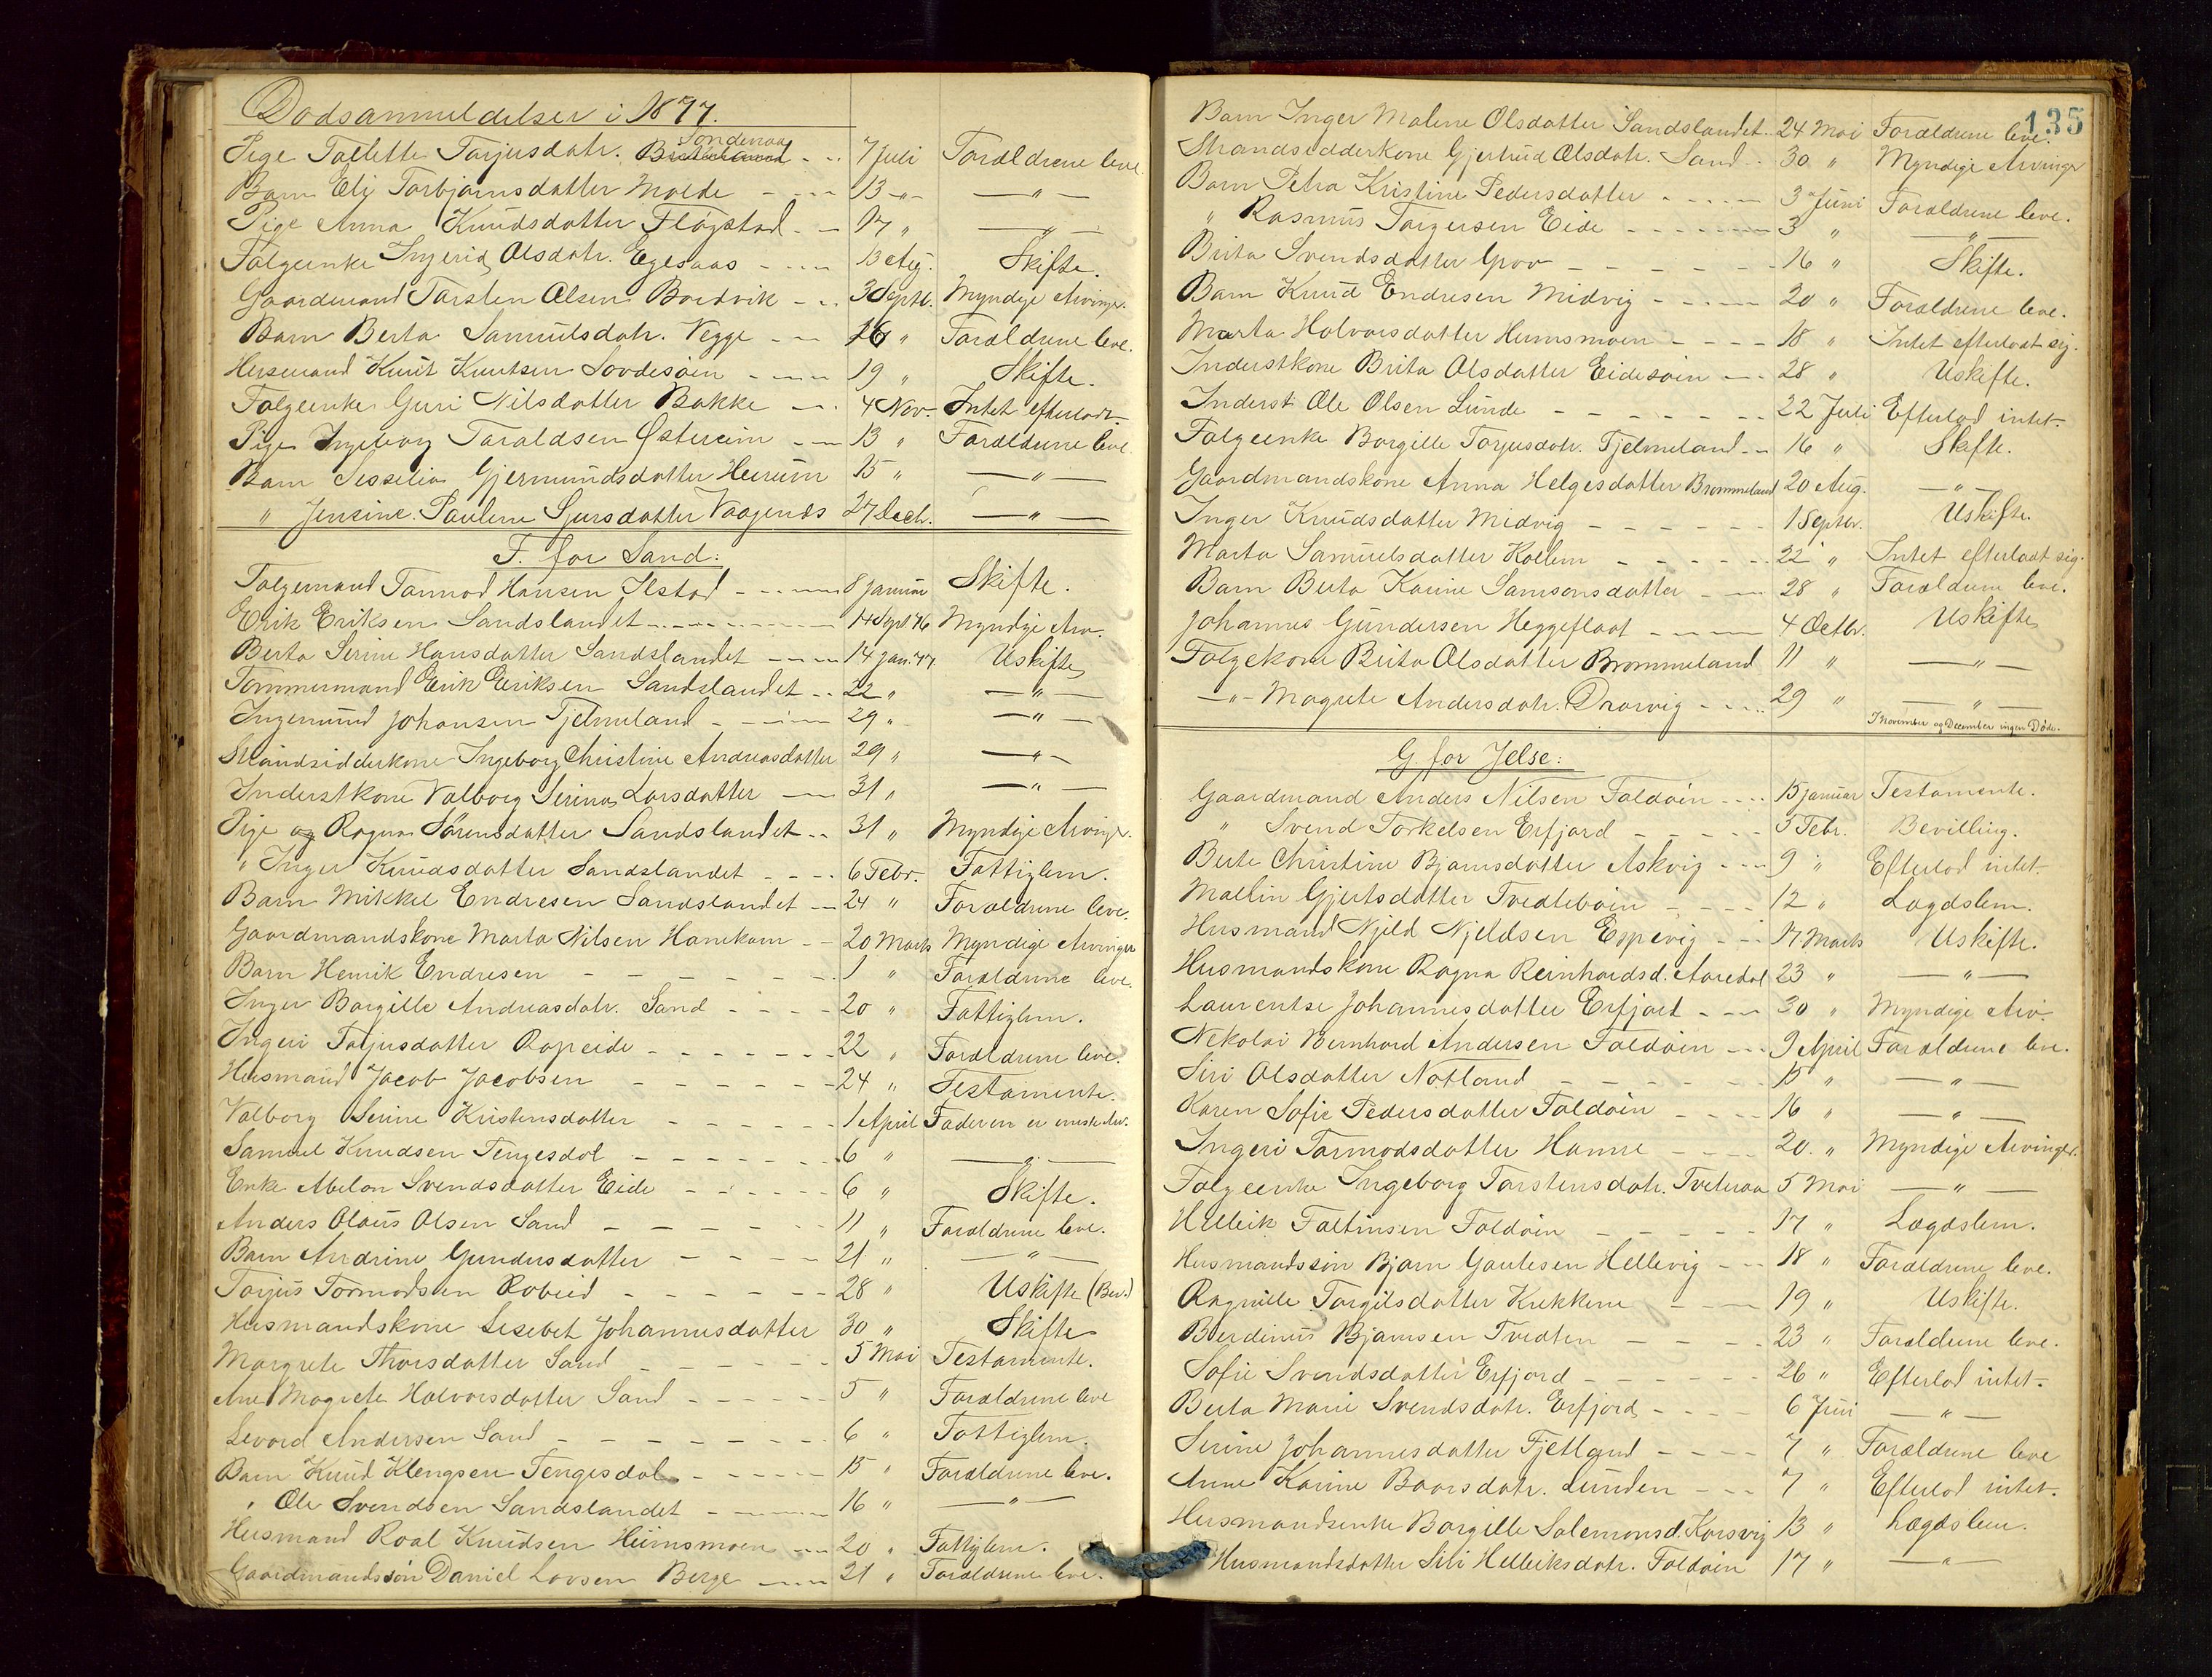 Dødsanmeldelser i 1877.
Pige Tallette Tarjusdatr. Søndenaa - .. 7 Juli Forældrene leve.
Barn Eli Torbjørnsdatter Molde - - - 13 -"- — " —
Pige Anna Knudsdatter Fløgstad - - 17 " — " —
Følgeenke Ingerid Olsdatr. Egesaas - - - 13 Aug. Skifte.
Gaardmand Tarsten Olsen Bordvik - .. 3 Septb. Myndige Arvinger.
Barn Berta Samuelsdatr. Vegge - - 16 " Forældrene leve.
Husmand Knut Knutsen Sovdesøen - - - 19 " Skifte.
Følgeenke Guri Nilsdatter Bakke - - 4 Nov. Intet efterladt
Pige Ingeborg Taraldsen Østereim - - 13 " Forældrene leve.
Barn Sesselia Gjermundsdatter Herum 15 " — " —
" Jensine Paulene Sjursdatter Vaagenes 27 Decb. — " —
F. for Sand:
Følgemand Tormod Hansen Ilstad - - - 8 Januar Skifte.
Erik Eriksen Sandslandet - - - 14 Sept 76 Myndige Arv.
Berta Serine Hansdatter Sandslandet - - - 14 Jan. 77. Uskifte
Tømmermand Erik Eriksen Sandslandet - . 22 " — " —
Ingemund Johansen Tjelmeland - - - 29 " — " —
Strandsidderkone Ingeborg Christine Andreasdatter 29 " — " —
Inderstkone Valborg Serina Larsdatter - - 31 " — " —
Pige og Ragna Sørensdatter Sandslandet - . 31 " Myndige Arvinger.
" Inger Knudsdatter Sandslandet - - - 6 Febr. Fattiglem.
Barn Mikkel Endresen Sandslandet - - 24 " Forældrene leve.
Gaardmandskone Marta Nilsen Hanekam - - 20 Marts Myndige Arvinger
Barn Henrik Endresen - - - - - - 1 " Forældrene leve.
Inger Borgille Andreasdatr. Sand - - - - 20 " Fattiglem.
Ingeri Tarjusdatter Ropeide - - - - - 22 " Forældrene leve.
Husmand Jacob Jacobsen - - - - - - 24 " Testamente.
Valborg Serine Kristensdatter - - - - - 1 April Faderen er eneste Arv.
Samuel Knudsen Tengesdal - - - - - 6 " — " —
Enke Abelon Svendsdatter Eide - - - - - 6 " Skifte.
Anders Olaus Olsen Sand - - - - - 11 " Forældrene leve.
Barn Andrine Gundersdatter - - - - 21 " — " —
Tarjus Tormodsen Robeid - - - - - - 28 " Uskifte (Bev.)
Husmandskone Lisebet Johannesdatter 30 " Skifte
Margrete Thorsdatter Sand - - - - - 5 Mai Testamente.
Ane Magrete Halvorsdatter Sand - - - - - 5 " Forældrene leve
Levord Andersen Sand - - - - - - - 6 " Fattiglem.
Barn Knud Klengsen Tengesdal - - - - - 15 " Forældrene leve.
" Ole Svendsen Sandslandet - - - - 16 " — " —
Husmand Roal Knudsen Hiimsmoen - - 20 " Fattiglem.
Gaardmandssøn Daniel Larsen Berge - - - 21 " Forældrene leve.
135
Barn Inger Malene Olsdatter Sandslandet . . 24 Mai Forældrene leve.
Strandsidderkone Gjertrud Olsdatr. Sand - . 30 " Myndige Arvinger
Barn Petra Kristine Pedersdatter - - - - 3 Juni Forældrene leve.
" Rasmus Torgersen Eide - - - - - - 3 " — " —
Brita Svendsdatter Grov - - - - - - 16 " Skifte.
Barn Knud Endresen Midvig - - - - 20 " Forældrene leve.
Marta Halvorsdatter Humsmoen - - - - 18 " Intet efterladt sig.
Inderstkone Brita Olsdatter Eidesøen - - 28 " Uskifte.
Inderst Ole Olsen Lunde - - - - - - 22 Juli Efterlod intet.
Følgeenke Borgille Torjusdatr. Tjelmeland - - 16 " Skifte.
Gaardmandskone Anna Helgesdatter Brommeland 20 Aug. — " —
Inger Knudsdatter Midvig - - - - - - 1 Septbr. Uskifte.
Marta Samuelsdatter Kollem - - - - - 22 " Intet efterladt sig.
Barn Berta Karine Samsonsdatter - - - 28 " Forældrene leve.
Johannes Gundersen Heggeflaat - - - - 4 Octbr. Uskifte
Følgekone Brita Olsdatter Brommeland 11 " — " —
— " — Magrete Andersdatr. Draarvig - - - . . 29 " — " —
I November og December ingen Døde.
G. for Jelse:
Gaardmand Anders Nilsen Foldøen - - - - 15 Januar Testamente.
" Svend Torkelsen Erfjord - - - - - 3 Febr. Bevilling.
Berte Christine Bjørnsdatter Askvig - - - 9 " Efterlod intet.
Mallin Gjertsdatter Tvedtebøen - - - - 12 " Lægdslem.
Husmand Njeld Njeldsen Espevig - - - 17 Marts Uskifte.
Husmandskone Ragna Reinhardsd. Aaredal 23 " — " —
Laurentse Johannesdatter Erfjord - - - 30 " Myndige Arv.
Nekolai Bernhard Andersen Foldøen - - - 9 April Forældrene leve.
Siri Olsdatter Natland - - - - - - 15 " — " —
Karen Sofie Pedersdatter Foldøen - - - - 16 " — " —
Ingeri Tormodsdatter Hanne - - - - 20. " Myndige Arvinger.
Følgeenke Ingeborg Torstensdatr. Tveteraa 5 Mai — " —
Helleik Faltinsen Foldøen - - - - - 17 " Lægdslem.
Husmandssøn Bjørn Gautesen Hellevig - - - 18 " Forældrene leve.
Ragnille Torgilsdatter Krekkene - - - - 19 " Uskifte.
Berdinus Bjørnsen Tvedten - - - - - 23 " Forældrene leve.
Sofie Svendsdatter Erfjord - - - - - - 26 " Efterlod intet.
Berta Marie Svendsdatr. Erfjord - - - - 6 Juni — " —
Serine Johannesdatter Fjetland - - - - 7 " Forældrene leve
Anne Karine Baarsdatr. Lunden - - - 7 " Efterlod intet.
Husmandsenke Borgille Salemonsd. Korsvig 13 " Lægdslem.
Husmandsdatter Sibi Helleiksdatr. Foldøen 17 " — " —